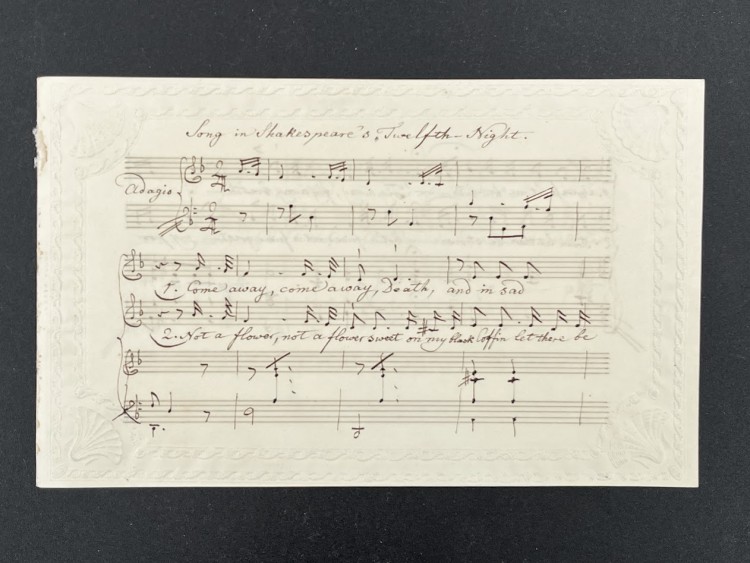 Song in Shakespeare's Twelfth-Night.
Adagio
1. Come away, come away, Death, and in sad
2. Not a flower, not a flower sweet on my black Coffin let there be